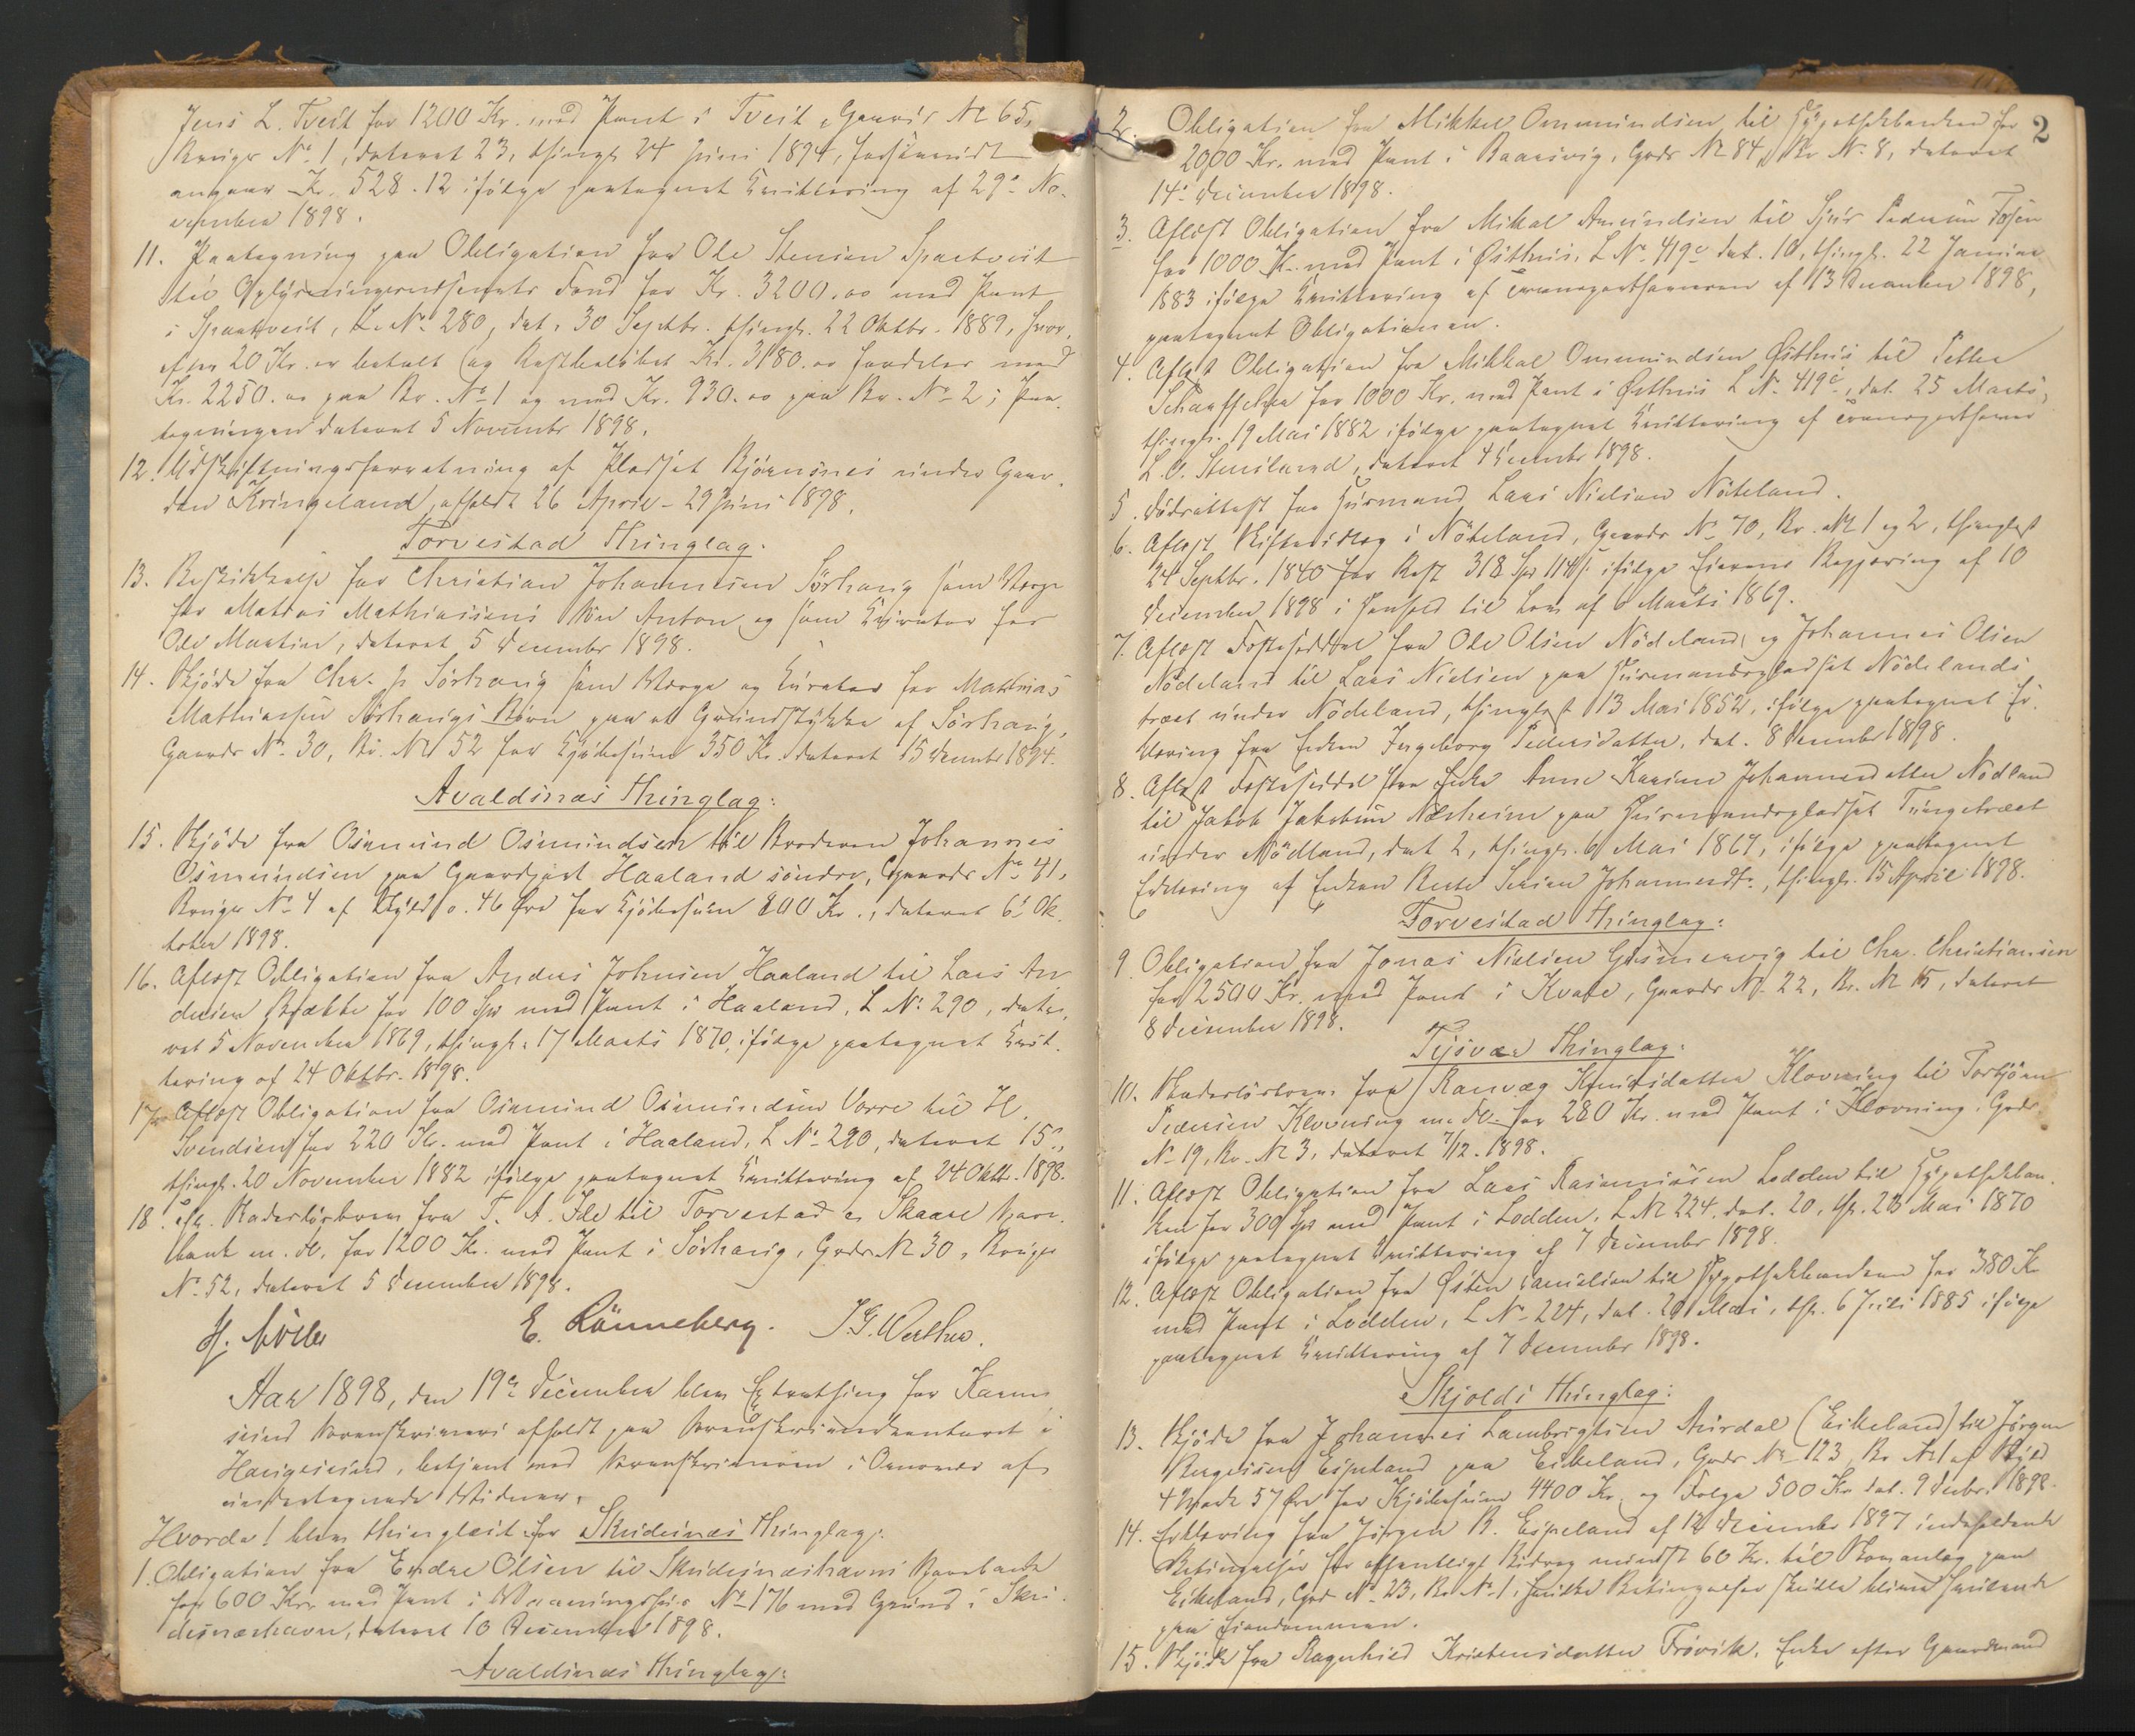 Jens L. Tveit for 1200 Kr. med Pant i Tveit, Gaards No 65,
Brugs No 1, dateret 23, thingl. 24 Juni 1894, forsaavidt
angaar Kr. 528.12 ifølge paategnet Kvittering af 29de No-
vember 1898.
11. Paategning paa Obligation fra Ole Stensen Spaatveit
til Oplysningsvæsenets Fond for Kr. 3200.00 med Pant
i Spaatveit, L. No 280, dat. 30 Septbr. thingl. 22 Oktbr. 1889, hvor-
efter 20 Kr. er betalt og Restbeløbet Kr. 3180.00 fordeles med
Kr. 2250.00 paa Br. No 1 og med Kr. 930.00 paa Br. No 2; Paa-
tegningen dateret 5 Novembr 1898.
12. Udskiftningsforretning af Pladset Bjørnsnes under Gaar-
den Kringeland, afholdt 26 April - 29 Juni 1898.
Torvestad Thinglag:
13. Beskikkelse for Christian Johannesen Sørhaug som Værge
for Mathias Mathiassens Søn Anton og som Kurator for
Ole Martin, dateret 5 December 1898.
14. Skjøde fra Chr. J. Sørhaug som Værge og Kurator for Mathias
Mathiassen Sørhaugs Børn paa et Grundstykke af Sørhaug,
Gaards No 30, Br. No 52 for Kjøbesum 350 Kr. dateret 15 Decembr 1894.
Avaldsnæs Thinglag:
15. Skjøde fra Osmund Osmundsen til Broderen Johannes
Osmundsen paa Gaardpart Haaland søndre, Gaards No 41,
Brugs No 4 af Skyld 0.46 Øre for Kjøbesum 800 Kr., dateret 6te Ok-
tober 1898.
16. Aflæst Obligation fra Anders Johnsen Haaland til Lars An-
dersen for 100 Spd med Pant i Haaland, L No 290, date-
ret 5 November 1869, thingl. 17 Marts 1870, ifølge paategnet Kvit-
tering af 24 Oktbr. 1898.
17. Aflæst Obligation fra Osmund Osmundsen Vorre til H.
Svendsen for 220 Kr. med Pant i Haaland, L No 290, dateret 15de,
thingl. 20 November 1882 ifølge paategnet Kvittering af 24 Oktb. 1898.
18. Kaderlørbrev fra T. A. Ile til Torvestad & Skaare Spare-
bank m. Fl. for 1200 Kr. med Pant i Sørhaug, Grds No 30, Brugs
No 52, dateret 5 December 1898.
E. Rönneberg. J. G. Werther.
Aar 1898, den 19de December blev Extrathing for Karm-
sund Sorenskriveri afholdt paa Sorenskriverkontoret i
Haugesund, betjent med Sorenskriveren i Overvær af
undertegnede Vidner.
Hvorda! blev thinglæst for Skudesnæs Thinglag:
1. Obligation fra Endre Olsen til Skudesnæshavns Sparebank
for 600 Kr. med Pant i Vaaningshus No 176 med Grund i Sku-
desnæshavn, dateret 10 December 1898.
Avaldsnæs Thinglag:
2
2. Obligation fra Mikkel Ommundsen til Hypothekbanken for
2000 Kr. med Pant i Baasvig, Grds No 84, Br. No 8, dateret
14de December 1898.
3. Aflæst Obligation fra Mikal Amundsen til Sjur Pedersen Fosen
for 1000 Kr. med Pant i Østhus, L No 419c dat. 10, thingl. 22 Januar
1883 ifølge Kvittering af Transporthaveren af 13 December 1898,
paategnet Obligationen.
4. Aflæst Obligation fra Mikkal Ommundsen Østhus til Petter
for 1000 Kr. med Pant i Østhus L No 419c, dat. 25 Marts,
thingl. 19 Mai 1882 ifølge paategnet Kvittering af Transporthaver
L. O. dateret 4 Decembr 1898.
5. Dødsattest for Husmand Lars Nielsen Nødeland.
6. Aflæst Skifteudlæg i Nödeland, Gaards No 70, Br. No 1 og 2, thinglæst
24 Septbr. 1840 for Rest 318 Spd 114 s. ifølge Eierens Begjæring af 10
December 1898 i Henhold til Lov af 6 Marts 1869.
7. Aflæst Fæsteseddel fra Ole Olsen Nödeland og Johannes Olsen
Nödeland til Lars Nielsen paa Husmandspladset Nödelands-
træet under Nödeland, thinglæst 13 Mai 1852, ifølge paategnet Er-
klæring fra Enken Ingeborg Pedersdatter, dat. 8 Decembr 1898.
8. Aflæst Fæsteseddel fra Enke Anne Karine Johannesdatter Nødland
til Jakob Jakobsen Nærheim paa Husmandspladset Tungetræet
under Nødland, dat 2, thingl. 6 Mai 1867, ifølge paategnet
Erklæring af Enken Berte Serine Johannesdtr., thingl. 15 April 1898.
Torvestad Thinglag:
9. Obligation fra Jonas Nielsen Gismervig til Chr. Christiansen
for 2500 Kr. med Pant i Kvale, Gaards No 22, Br. No 15, dateret
8 December 1898.
Tysvær Thinglag:
10. Skadesløsbrev fra Ranvæg Knutsdatter Klovning til Torbjörn
Pedersen Klovning m. Fl. for 280 Kr. med Pant i Klovning, Grds
No 19, Br. No 3, dateret 7/12. 1898.
11. Aflæst Obligation fra Lars Rasmussen Lodden til Hypothekban-
ken for 300 Spd med Pant i Lodden, L No 224, dat. 20, thl. 23 Mai 1870
ifølge paategnet Kvittering af 7 Decembr 1898.
12. Aflæst Obligation fra Østen Danielsen til Hypothekbanken for 380 Kr
med Pant i Lodden, L No 224, dat. 20 Mai, thl. 6 Juli 1885 ifølge
paategnet Kvittering af 7 Decembr 1898.
Skjolds Thinglag:
13. Skjøde fra Johannes Lambrigtsen Aursdal (Eikeland) til Jörgen
Espeland paa Eikeland, Grds No 123, Br No 1 af Skyld
4 Mark 57 Øre for Kjøbesum 4400 Kr. og Følge 500 Kr dat. 9 Decbr. 1898.
14. Erklæring fra Jörgen B. Espeland af 12 December 1897 indeholdende
Betingelser for offentligt Bidrag mindst 60 Kr. til Skovanlæg paa
Eikeland, Grd No 23, Br. No 1, hvilke Betingelser skulle blive hvilende
paa Eiendommen.
15. Skjøde fra Ragnhild Kristensdatter Frøvik, Enke efter Gaardmand